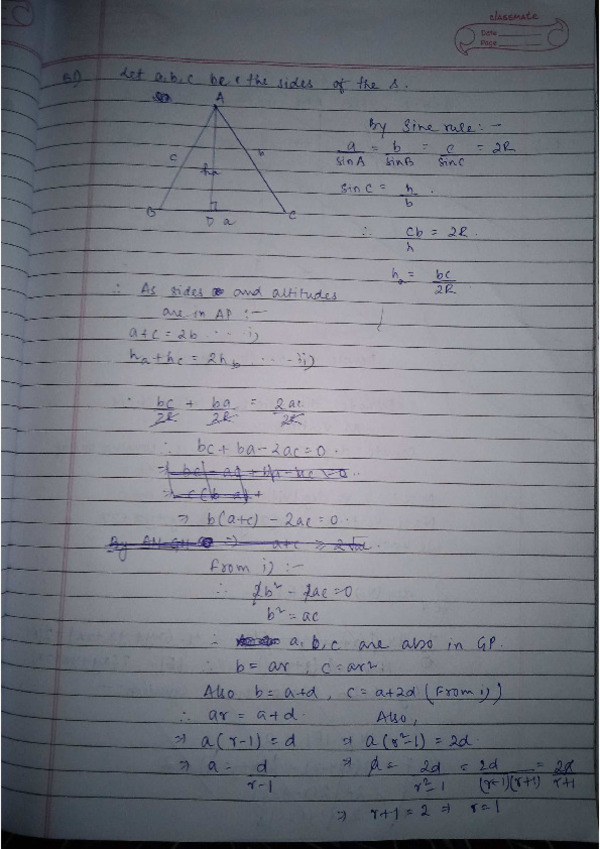 classmate
Date
Page
Let a, b, c be the sides of the Δ.
A
c
ha
B
D a
C
By Sine rule:-
a/sinA = b/sinB = c/sinC = 2R
sinC = h/b.
∴ cb/h = 2R.
ha = bc/2R.
∴ As sides and altitudes
are in AP :-
a+c = 2b ... i)
ha + hc = 2hb ... ii)
∴ bc/2R + ba/2R = 2ac/2R
∴ bc + ba - 2ac = 0.
⇒ b(a+c) - 2ac = 0.
From i) :-
∴ 2b² - 2ac = 0
b² = ac
∴ a, b, c are also in GP.
∴ b = ar, c = ar².
Also b = a+d, c = a+2d (From i))
∴ ar = a+d. Also,
⇒ a(r-1) = d ⇒ a(r²-1) = 2d.
⇒ a = d/r-1 ⇒ a = 2d/r²-1 = 2d/(r-1)(r+1) = 2d/r+1
⇒ r+1 = 2 ⇒ r = 1